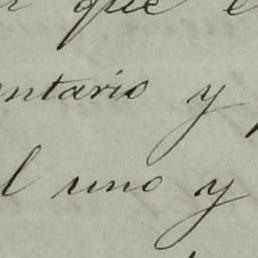 que
ntario y
l uno y